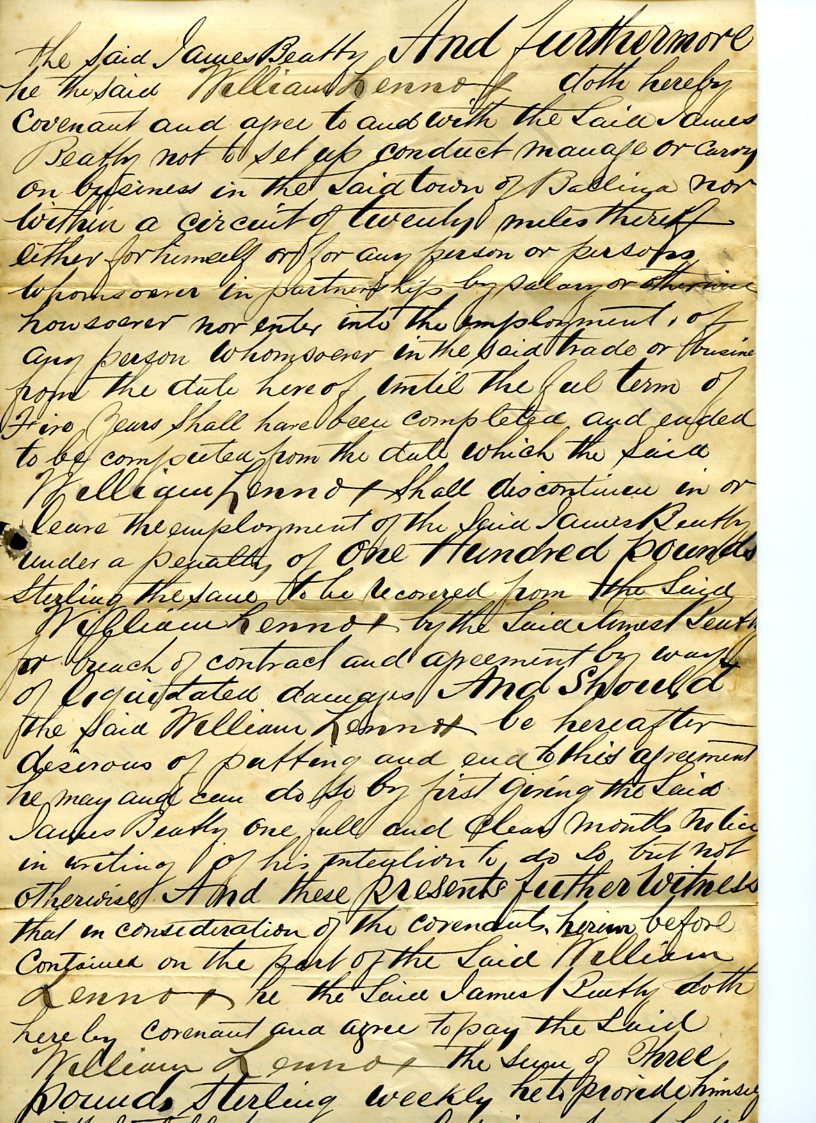 the said James Beatty And furthermore
he the said William Lennox doth hereby
Covenant and agree to and with the Said James
Beatty not to set up conduct manage or carry
on business in the Said town of Ballina nor
within a circuit of twenty miles thereof
either for himself or for any person or persons
whomsoever in partnership by salary or otherwise
howsoever nor enter into the employment of
any person whomsoever in the said trade or busine
from the date hereof until the full term of
Five Years Shall have been completed and ended
to be computed from the date which the Said
William Lennox Shall discontinue in or
leave the employment of the Said James Beatty
under a penalty of One Hundred pounds
Sterling the same to be recovered from the Said
William Lennox by the Said James Beatty
for breach of contract and agreement by way
of liquidated damages And Should
the Said William Lennox be hereafter
desirous of putting and end to this agreement
he may and can do So by first giving the Said
James Beatty one full and Clear Months notice
in writing of his intention to do So but not
otherwise And these presents futher Witness
that in consideration of the covenants herein before
Contained on the part of the Said William
Lennox he the Said James Beatty doth
hereby covenant and agree to pay the Said
William Lennox the Sum of Three
pounds Sterling weekly he to provide himself